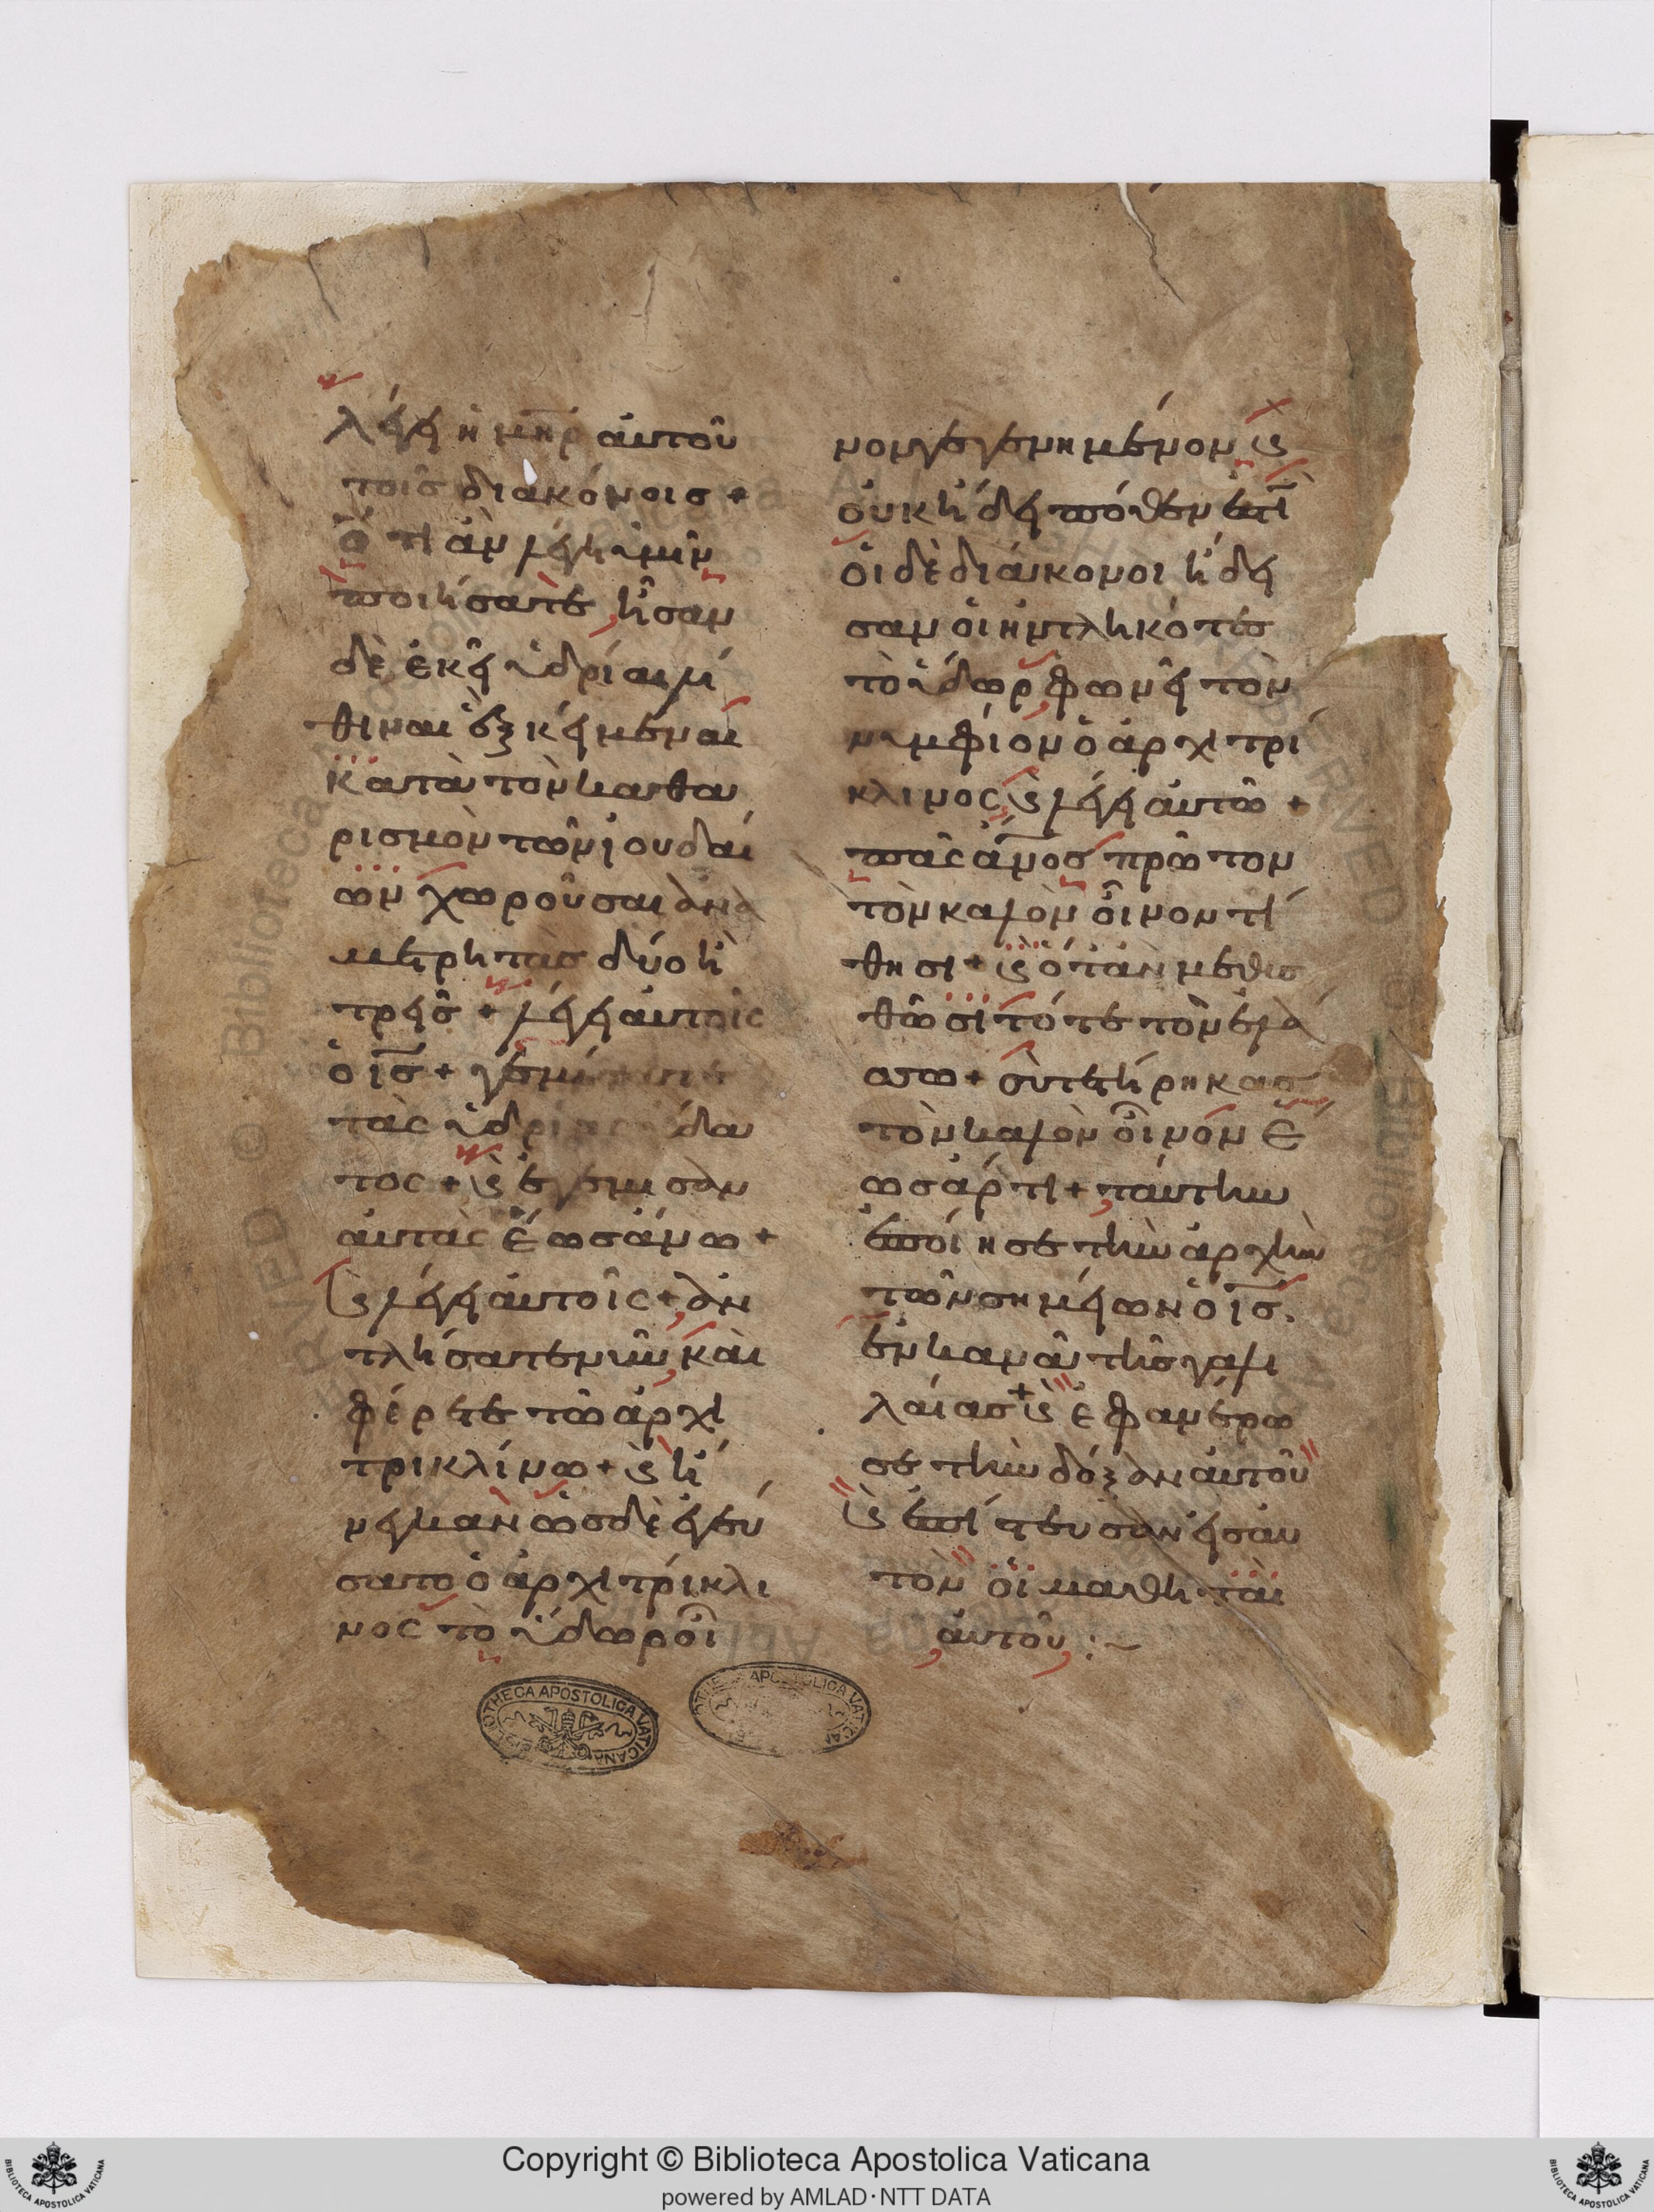 λέγει ἡ μη̅ρ αὐτοῦ
τοῖς διακόνοις +
ὅ τι ἂν λέγη ὑμῖν
ποιήσατε, ἦσαν
δὲ ἐκεῖ ὑδρίαι λί
θιναι ἓξ κείμεναι
κατὰ τὸν καθα
ρισμὸν τῶν ἰουδαί
ων χωροῦσαι ἀνὰ
μετρητὰς δύο ἢ
τρεῖς + λέγει αὐτοῖς
ὁ ι̅ς + γεμίσατε
τὰς ὑδρίας ὕδα
τος + ϗ ἐγέμισαν
αὐτὰς ἕως ἄνω +
ϗ λέγει αὐτοῖς + ἀν
τλήσατε νῦν, καὶ
φέρετε τῶ ἀρχι
τρικλίνω + ϗ ἤ
νεγκαν ὡς δὲ ἐγεύ
σατο ὁ ἀρχιτρίκλι
νος τὸ ὕδωρ οἶ
νον γεγενημένον ϗ
οὐκ ἤδει πόθεν ἐστὶ
οἱ δὲ διάκονοι ἤδει
σαν οἱ ἠντληκότες
τὸ ὕδωρ, φωνεῖ τὸν
νυμφίον ὁ ἀρχιτρί
κλινος ϗ λέγει αὐτῶ +
πᾶς α̅νος πρῶτον
τὸν καλὸν οἶνον τί
θησι + ϗ ὅταν μεθυσ
θῶσι τότε τὸν ἐλά
σσω + σὺ τετήρηκας
τὸν καλὸν οἶνον ἕ
ως ἄρτι + ταύτην
ἐποίησε τὴν ἀρχὴν
τῶν σημείων ὁ ι̅ς.
ἐν κανᾶ τῆς γαλι
λαίας + ϗ ἐφανέρω
σε τὴν δόξαν αὐτοῦ
ϗ ἐπίστευσαν εἰς αὐ
τὸν οἱ μαθηταὶ
αὐτοῦ :~
BIBLIOTHECA APOSTOLICA VATICANA
Copyright © Biblioteca Apostolica Vaticana
powered by AMLAD·NTT DATA